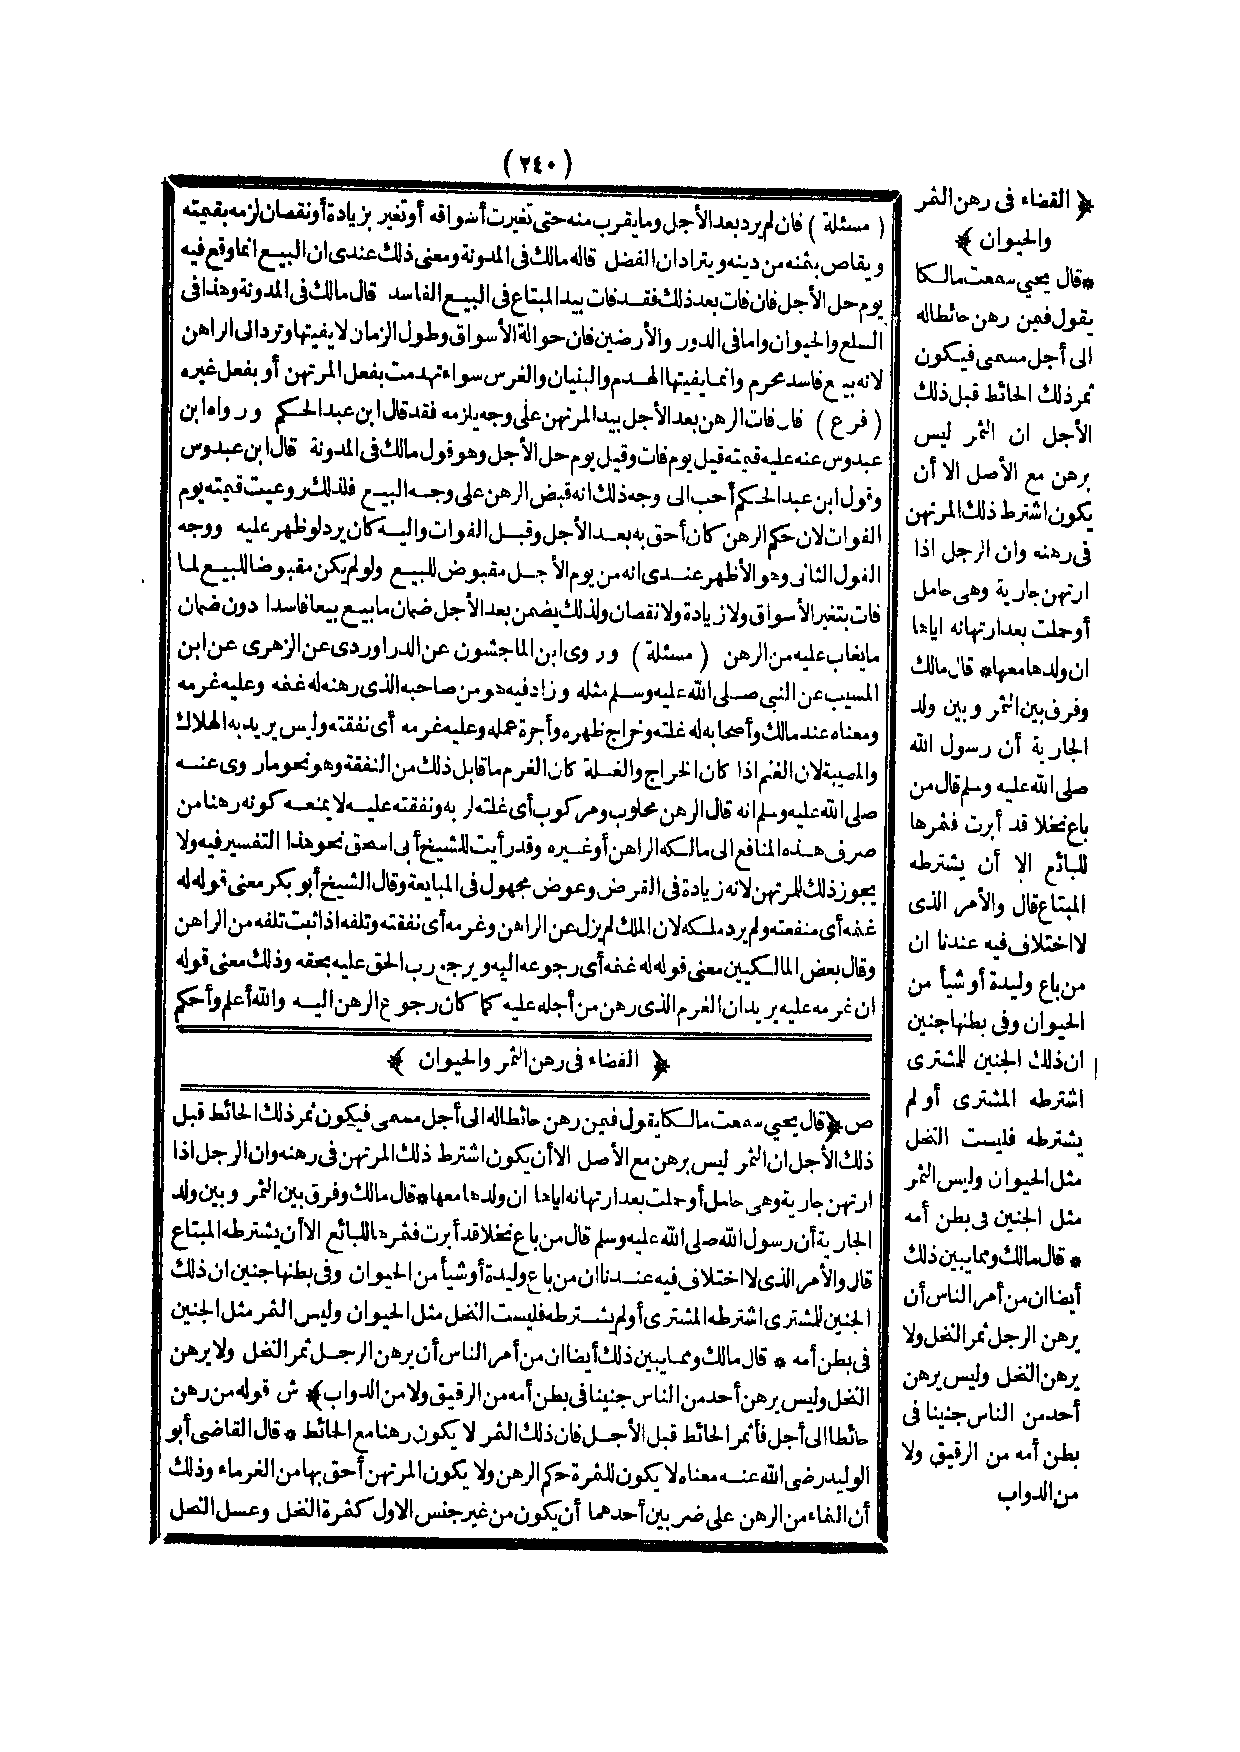 (٢٤٠)
﴿ القضاء فى رهن الثمر
والحيوان ﴾
*قال يحيى سمعت مالكا
يقول فيمن رهن حائطاله
الى أجل مسمى فيكون
ثمر ذلك الحائط قبل ذلك
الأجل ان الثمر ليس
برهن مع الأصل الا أن
يكون اشترط ذلك المرتهن
فى رهنه وان الرجل اذا
ارتهن جارية وهى حامل
أو حملت بعد ارتهانه اياها
ان ولدها معها* قال مالك
وفرق بين الثمر وبين ولد
الجارية أن رسول الله
صلى الله عليه وسلم قال من
باع نخلا قد أبرت فثمرها
للبائع الا أن يشترطه
المبتاع قال والأمر الذى
لا اختلاف فيه عندنا ان
من باع وليدة أو شيأ من
الحيوان وفى بطنها جنين
ان ذلك الجنين للمشترى
اشترطه المشترى أو لم
يشترطه فليست النخل
مثل الحيوان وليس الثمر
مثل الجنين فى بطن أمه
* قال مالك ومما يبين ذلك
أيضا ان من أمر الناس أن
يرهن الرجل ثمر النخل ولا
يرهن النخل وليس يرهن
أحد من الناس جنينا فى
بطن أمه من الرقيق ولا
من الدواب
( مسئلة ) فان لم يرد بعد الأجل وما يقرب منه حتى تغيرت أسواقه أو تغير بزيادة أو نقصان لزمه بقيمته
ويقاص بثمنه من دينه ويترادان الفضل قاله مالك فى المدونة ومعنى ذلك عندى ان البيع انما وقع فيه
يوم حل الأجل فان فات بعد ذلك فقد فات بيد المبتاع فى البيع الفاسد قال مالك فى المدونة وهذا فى
السلع والحيوان وامافى الدور والأرضين فان حوالة الأسواق وطول الزمان لا يفيتها وترد الى الراهن
لانه بيع فاسد محرم وانما يفيتها الهدم والبنيان والغرس سواء تهدمت بفعل المرتهن أو بفعل غيره
( فرع ) فان فات الرهن بعد الأجل بيد المرتهن على وجه يلزمه فقد قال ابن عبد الحكم ورواه ابن
عبدوس عنه عليه قيمته قيل يوم فات وقيل يوم حل الأجل وهو قول مالك فى المدونة قال ابن عبدوس
وقول ابن عبد الحكم أحب الى وجه ذلك انه قبض الرهن على وجه البيع فلذلك روعيت قيمته يوم
الفوات لان حكم الرهن كان أحق به بعد الأجل وقبل الفوات واليه كان يرد لو ظهر عليه ووجه
القول الثانى وهو الأظهر عندى انه من يوم الأجل مقبوض للبيع ولو لم يكن مقبوضا للبيع لما
فات بتغير الأسواق ولا زيادة ولا نقصان ولذلك يضمن بعد الأجل ضمان ما بيع بيعا فاسدا دون ضمان
ما يغاب عليه من الرهن ( مسئلة ) وروى ابن الماجشون عن الدراوردى عن الزهرى عن ابن
المسيب عن النبى صلى الله عليه وسلم مثله وزاد فيه هو من صاحبه الذى رهنه له غنمه وعليه غرمه
ومعناه عند مالك وأصحابه له غلته وخراج ظهره وأجرة عمله وعليه غرمه أى نفقته وليس يريد به الهلاك
والمصيبة لان الغنم اذا كان الخراج والغلة كان الغرم ما قابل ذلك من النفقة وهو نحو ما روى عنه
صلى الله عليه وسلم انه قال الرهن محلوب ومركوب أى غلته لربه ونفقته عليه لا يمنعه كونه رهنا من
صرف هذه المنافع الى مالكه الراهن أو غيره وقد رأيت للشيخ أبى اسحق نحو هذا التفسير فيه ولا
يجوز ذلك للمرتهن لانه زيادة فى القرض وعوض مجهول فى المبايعة وقال الشيخ أبو بكر معنى قوله له
غنمه أى منفعته ولم يرد ملكه لان الملك لم يزل عن الراهن وغرمه أى نفقته وتلفه اذا ثبت تلفه من الراهن
وقال بعض المالكيين معنى قوله له غنمه أى رجوعه اليه ويرجع رب الحق عليه بحقه وذلك معنى قوله
ان غرمه عليه يريد ان الغرم الذى رهن من أجله عليه كما كان رجوع الرهن اليه والله أعلم وأحكم
﴿ القضاء فى رهن الثمر والحيوان ﴾
ص ﴿قال يحيى سمعت مالكا يقول فيمن رهن حائطاله الى أجل مسمى فيكون ثمر ذلك الحائط قبل
ذلك الأجل ان الثمر ليس برهن مع الأصل الا أن يكون اشترط ذلك المرتهن فى رهنه وان الرجل اذا
ارتهن جارية وهى حامل أو حملت بعد ارتهانه اياها ان ولدها معها*قال مالك وفرق بين الثمر وبين ولد
الجارية أن رسول الله صلى الله عليه وسلم قال من باع نخلا قد أبرت فثمرها للبائع الا أن يشترطه المبتاع
قال والأمر الذى لا اختلاف فيه عندنا ان من باع وليدة أو شيأ من الحيوان وفى بطنها جنين ان ذلك
الجنين للمشترى اشترطه المشترى أو لم يشترطه فليست النخل مثل الحيوان وليس الثمر مثل الجنين
فى بطن أمه * قال مالك ومما يبين ذلك أيضا ان من أمر الناس أن يرهن الرجل ثمر النخل ولا يرهن
النخل وليس يرهن أحد من الناس جنينا فى بطن أمه من الرقيق ولا من الدواب﴾ ش قوله من رهن
حائطا الى أجل فأثمر الحائط قبل الأجل فان ذلك الثمر لا يكون رهنا مع الحائط * قال القاضى أبو
الوليد رضى الله عنه معناه لا يكون للثمرة حكم الرهن ولا يكون المرتهن أحق بها من الغرماء وذلك
أن النماء من الرهن على ضربين أحدهما أن يكون من غير جنس الاول كثمرة النخل وعسل النحل